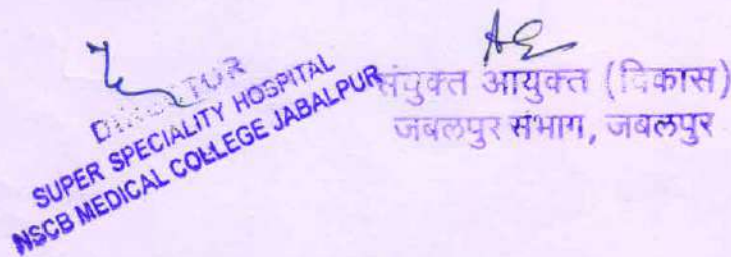 DIRECTOR
SUPER SPECIALITY HOSPITAL
NSCB MEDICAL COLLEGE JABALPUR
संयुक्त आयुक्त (विकास)
जबलपुर संभाग, जबलपुर